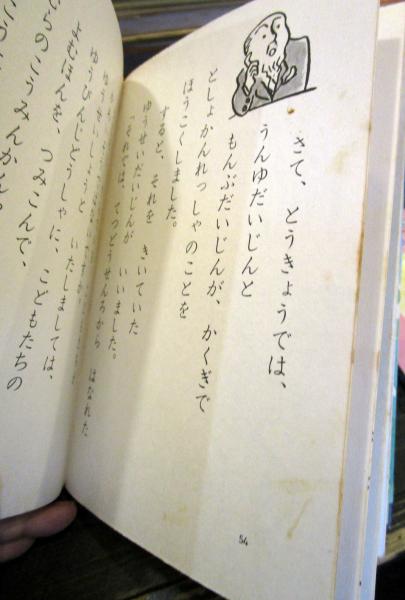 さて、とうきょうでは、
うんゆだいじんと
もんぶだいじんが、かくぎで
としょかんれっしゃのことを
ほうこくしました。
すると、それを きいていた
ゆうせいだいじんが いいました。
「それでは、てつどうせんろから はなれた
ゆうせいしょうと いたしましては、
ゆうびんじどうしゃに、こどもたちの
よむほんを、つみこんで、
らのこうみんかん
54